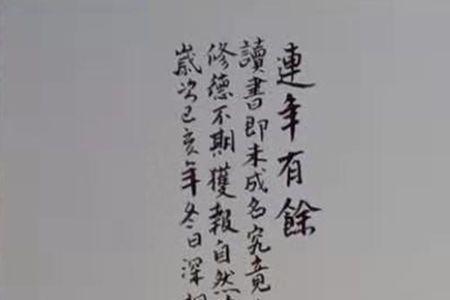 連年有餘
讀書即未成名究竟
修德不期獲報自然
歲次己亥年冬日深圳